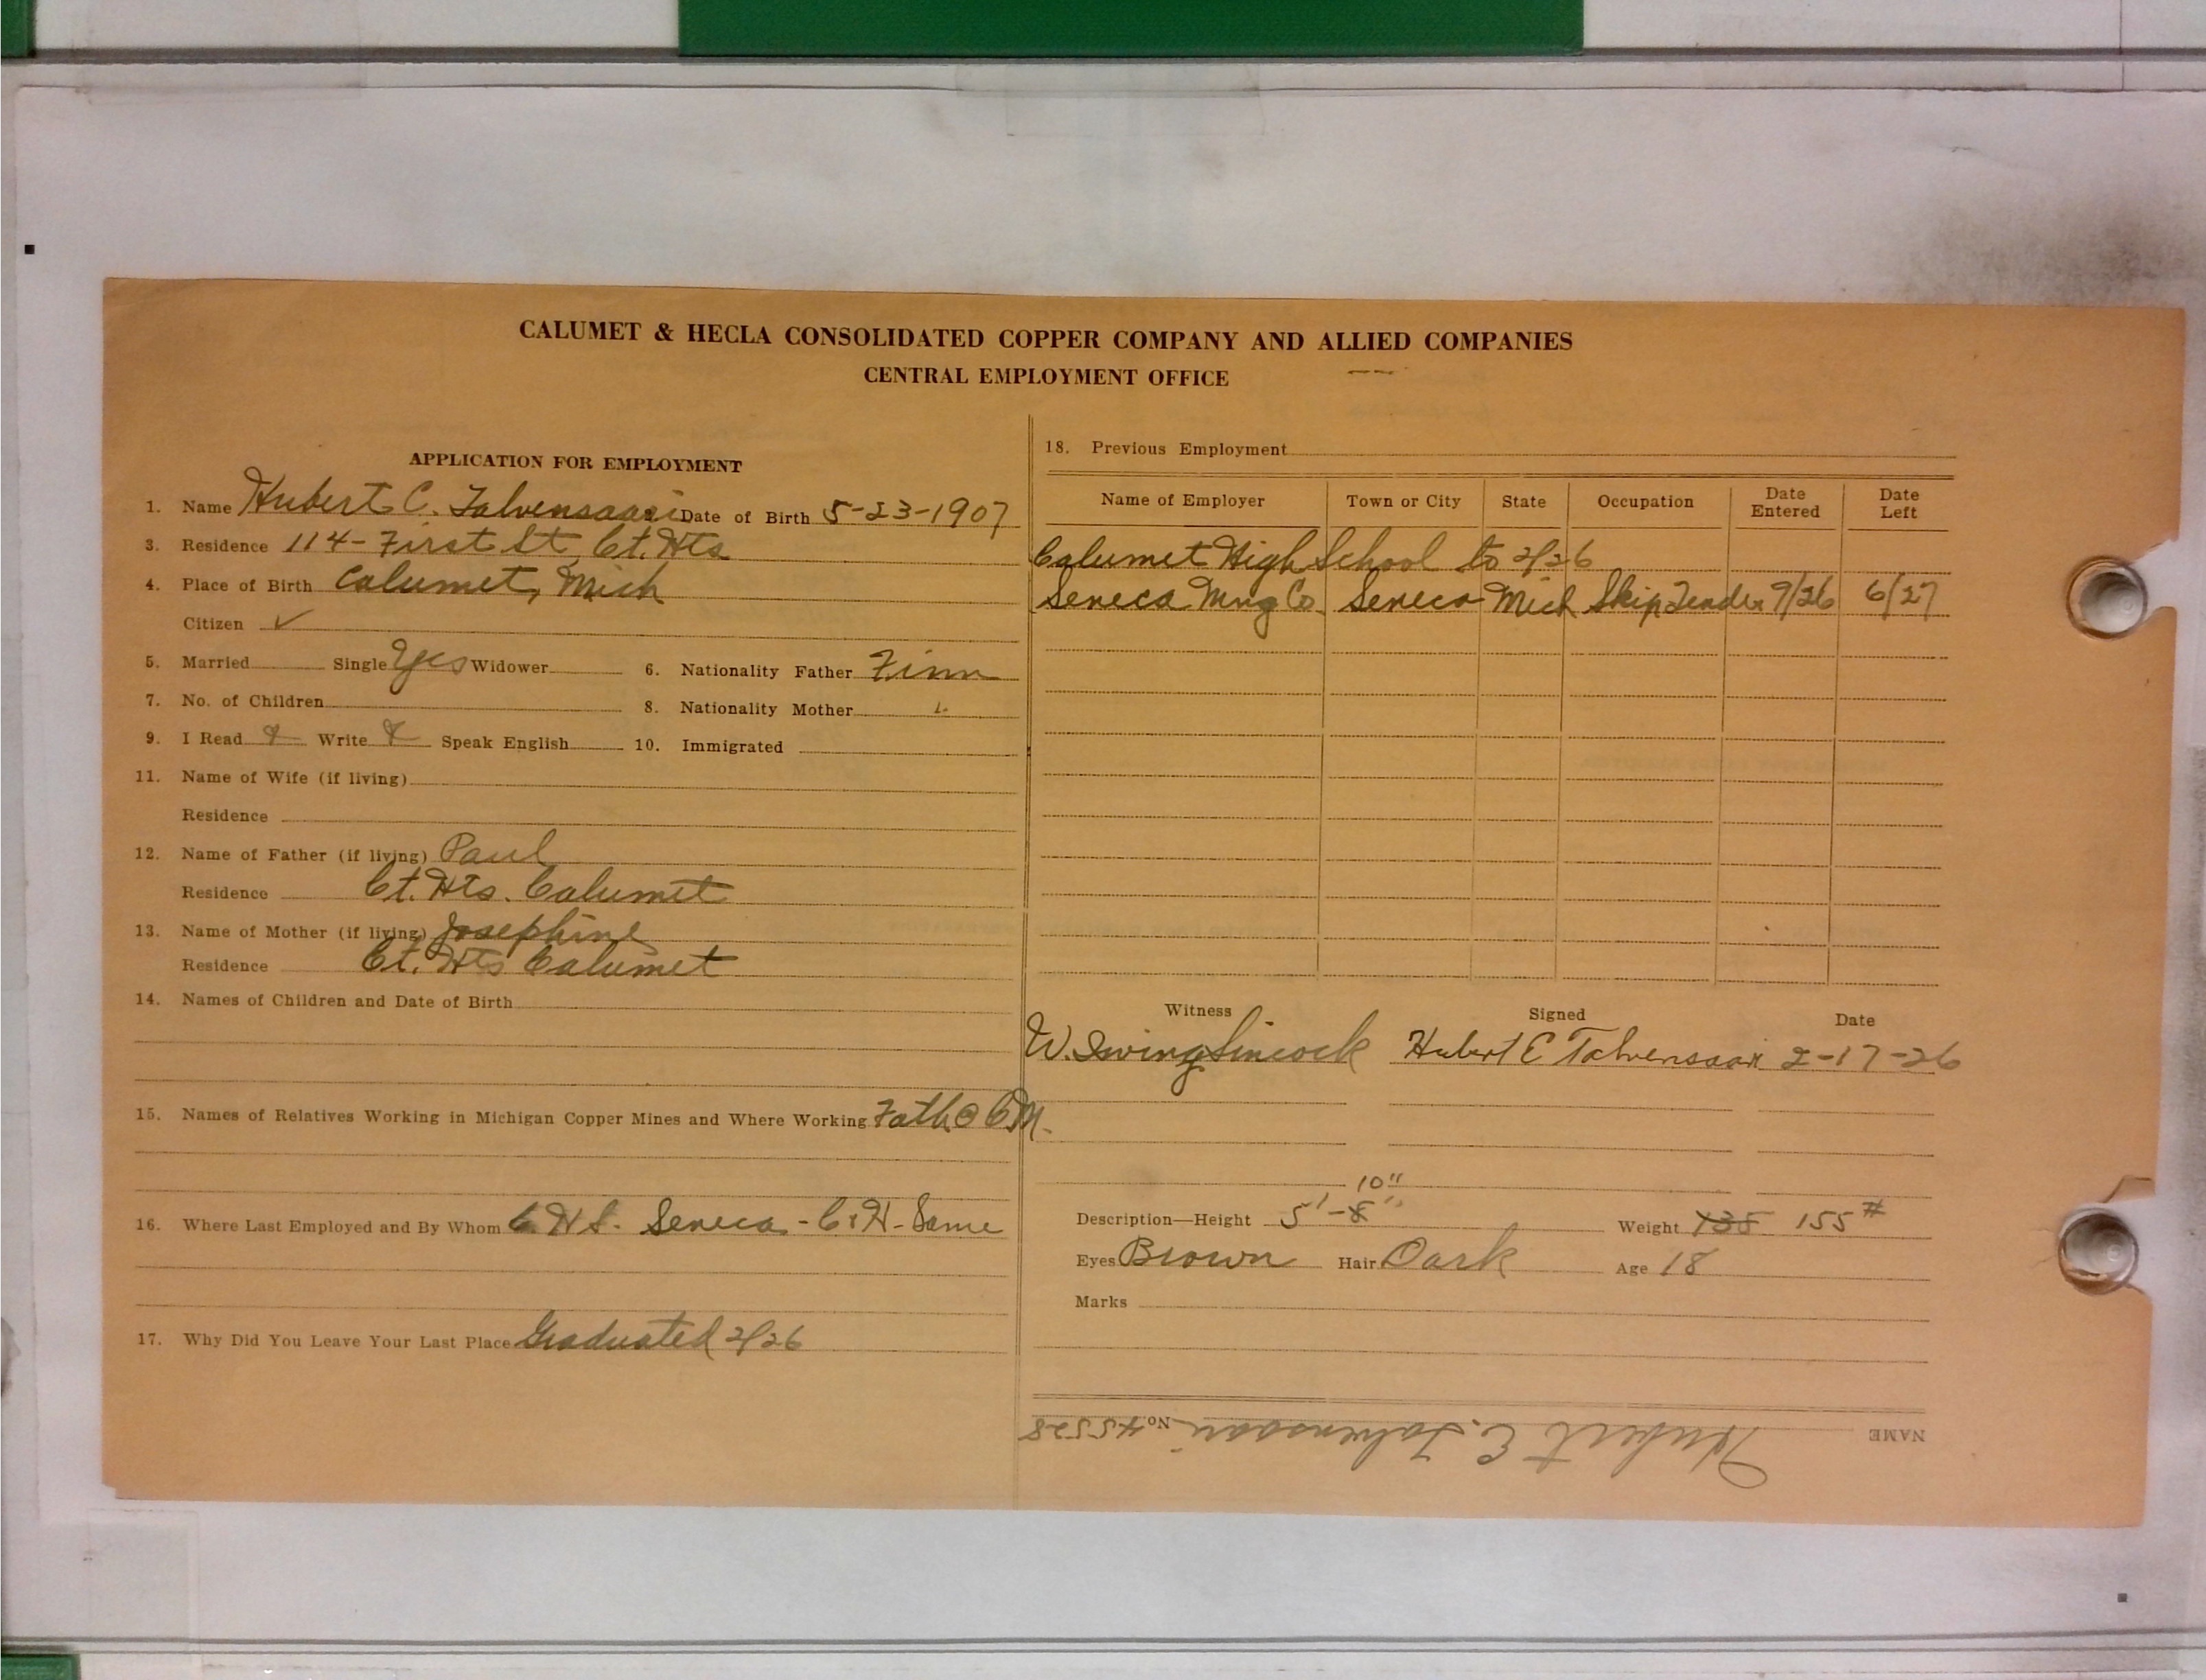 CALUMET & HECLA CONSOLIDATED COPPER COMPANY AND ALLIED COMPANIES
CENTRAL EMPLOYMENT OFFICE
APPLICATION FOR EMPLOYMENT
1. Name Hubert C. Talvensaari Date of Birth 5-23-1907
3. Residence 114- First St, Ct. Hts
4. Place of Birth Calumet, Mich
Citizen ✓
5. Married Single Yes Widower 6. Nationality Father Finn
7. No. of Children 8. Nationality Mother "
9. I Read & Write & Speak English 10. Immigrated
11. Name of Wife (if living)
Residence
12. Name of Father (if living) Paul
Residence Ct. Hts. Calumet
13. Name of Mother (if living) Josephine
Residence Ct. Hts Calumet
14. Names of Children and Date of Birth
15. Names of Relatives Working in Michigan Copper Mines and Where Working Fath @ C.M.
16. Where Last Employed and By Whom C.H.S. Seneca - C&H - Same
17. Why Did You Leave Your Last Place Graduated 2/26
18. Previous Employment
Name of Employer Town or City State Occupation Date Entered Date Left
Calumet High School to 2/26
Seneca Mng Co. Seneca Mich Skip Tender 9/26 6/27
Witness Signed Date
W. Ewing Sincock Hubert C Talvensaari 2-17-26
10"
Description—Height 5'-8" Weight 135 155#
Eyes Brown Hair Dark Age 18
Marks
NAME Hubert C. Talvensaari No. 45528